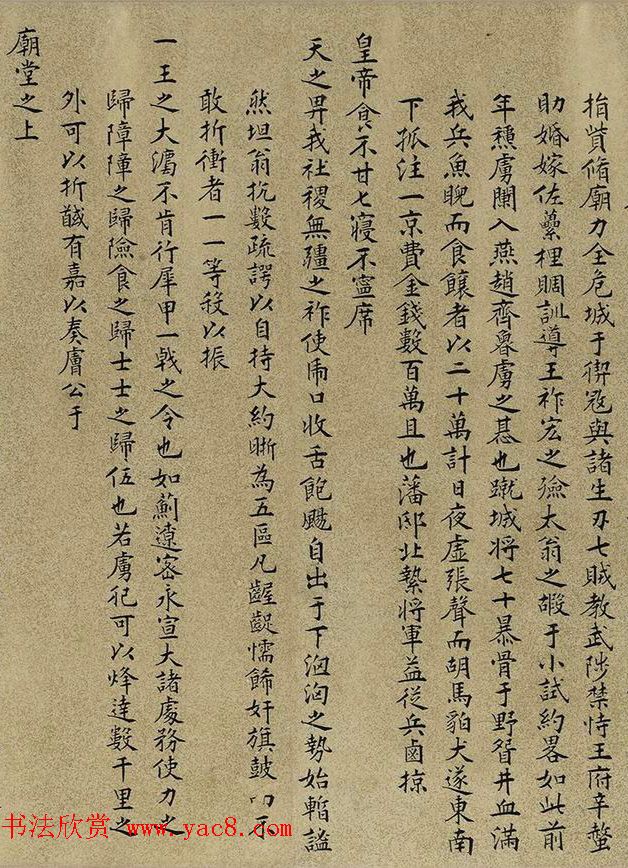 捐貲脩廟力全危城于禊寇與諸生刃七賊教武陟禁恃王府辛螫
助婚嫁佐虆梩賙訓導王祚宏之殮太翁之嘏于小試約畧如此前
年穮虜闌入燕趙齊魯虜之惎也蹴城將七十暴骨于野眢井血滿
我兵魚睨而食饟者以二十萬計日夜虛張聲而胡馬豹犬遂東南
下孤注一京費金錢數百萬且也藩邸北縶將軍益從兵鹵掠
皇帝食不甘七寢不寧席
天之畀我社稷無疆之祚使乕口收舌飽颺自出于下洶洶之勢始暫謐
然坦翁抗數疏諤以自持大約晰為五區凡齷齪懦餙奸旗鼓不
敢折衝者一一等殺以振
一王之大瀉不肯行犀甲一戟之令也如薊遼密永宣大諸處務使力之
歸障障之歸險食之歸士士之歸伍也若虜犯可以烽達數千里之
外可以折馘有嘉以奏膚公于
廟堂之上
书法欣赏 www.yac8.com